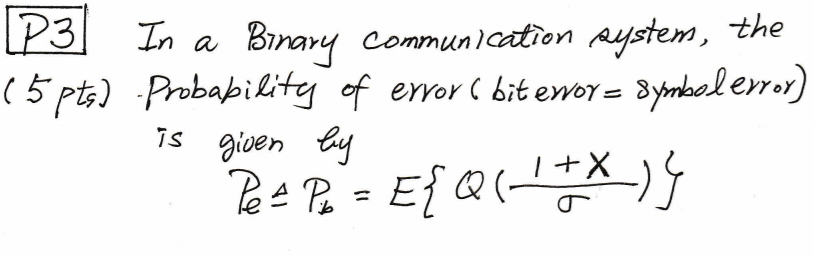 P3 In a Binary communication system, the
(5 pts) Probability of error (bit error = symbol error)
is given by
Pe ≜ Pb = E{Q(1+X/σ)}